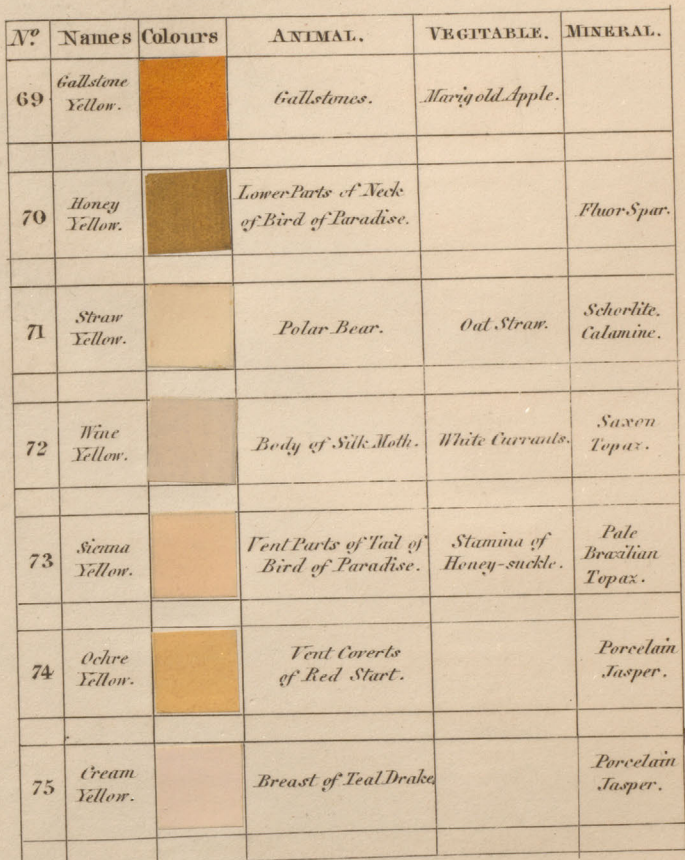 Nº Names Colours ANIMAL. VEGITABLE. MINERAL.
69 Gallstone Yellow. Gallstones. Marigold Apple.
70 Honey Yellow. Lower Parts of Neck of Bird of Paradise. Fluor Spar.
71 Straw Yellow. Polar Bear. Oat Straw. Schorlite. Calamine.
72 Wine Yellow. Body of Silk Moth. White Currants. Saxon Topaz.
73 Sienna Yellow. Vent Parts of Tail of Bird of Paradise. Stamina of Honey-suckle. Pale Brazilian Topaz.
74 Ochre Yellow. Vent Coverts of Red Start. Porcelain Jasper.
75 Cream Yellow. Breast of Teal Drake. Porcelain Jasper.